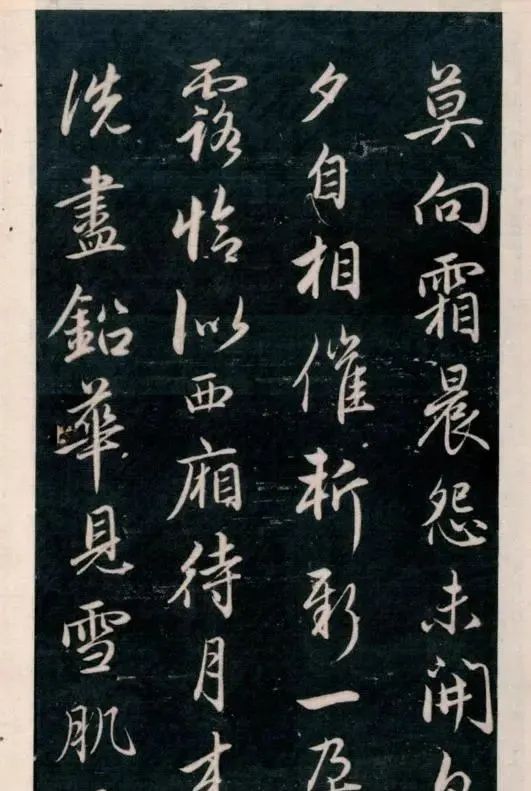 莫向霜晨怨未開白
夕自相催斬新一朶
露恰似西廂待月来
洗盡鉛華見雪肌